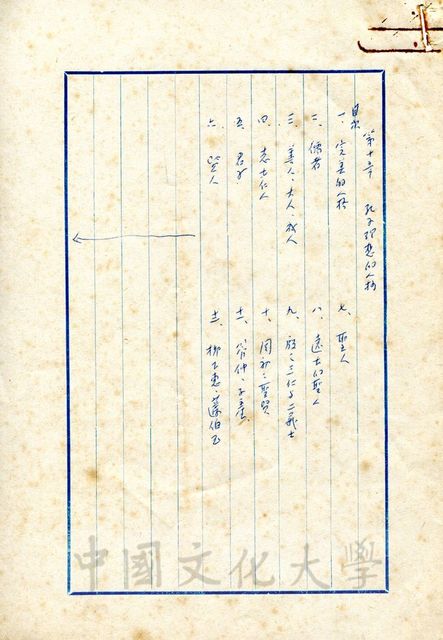 第十章 孔子理想的人格
目次
一、完美的人格
二、儒者
三、善人、大人、成人
四、志士仁人
五、君子
六、賢人
七、聖人
八、遠古的聖人
九、殷之三仁與二義士
十、周初之聖賢
十一、管仲、子產
十二、柳下惠、蘧伯玉
中國文化大學